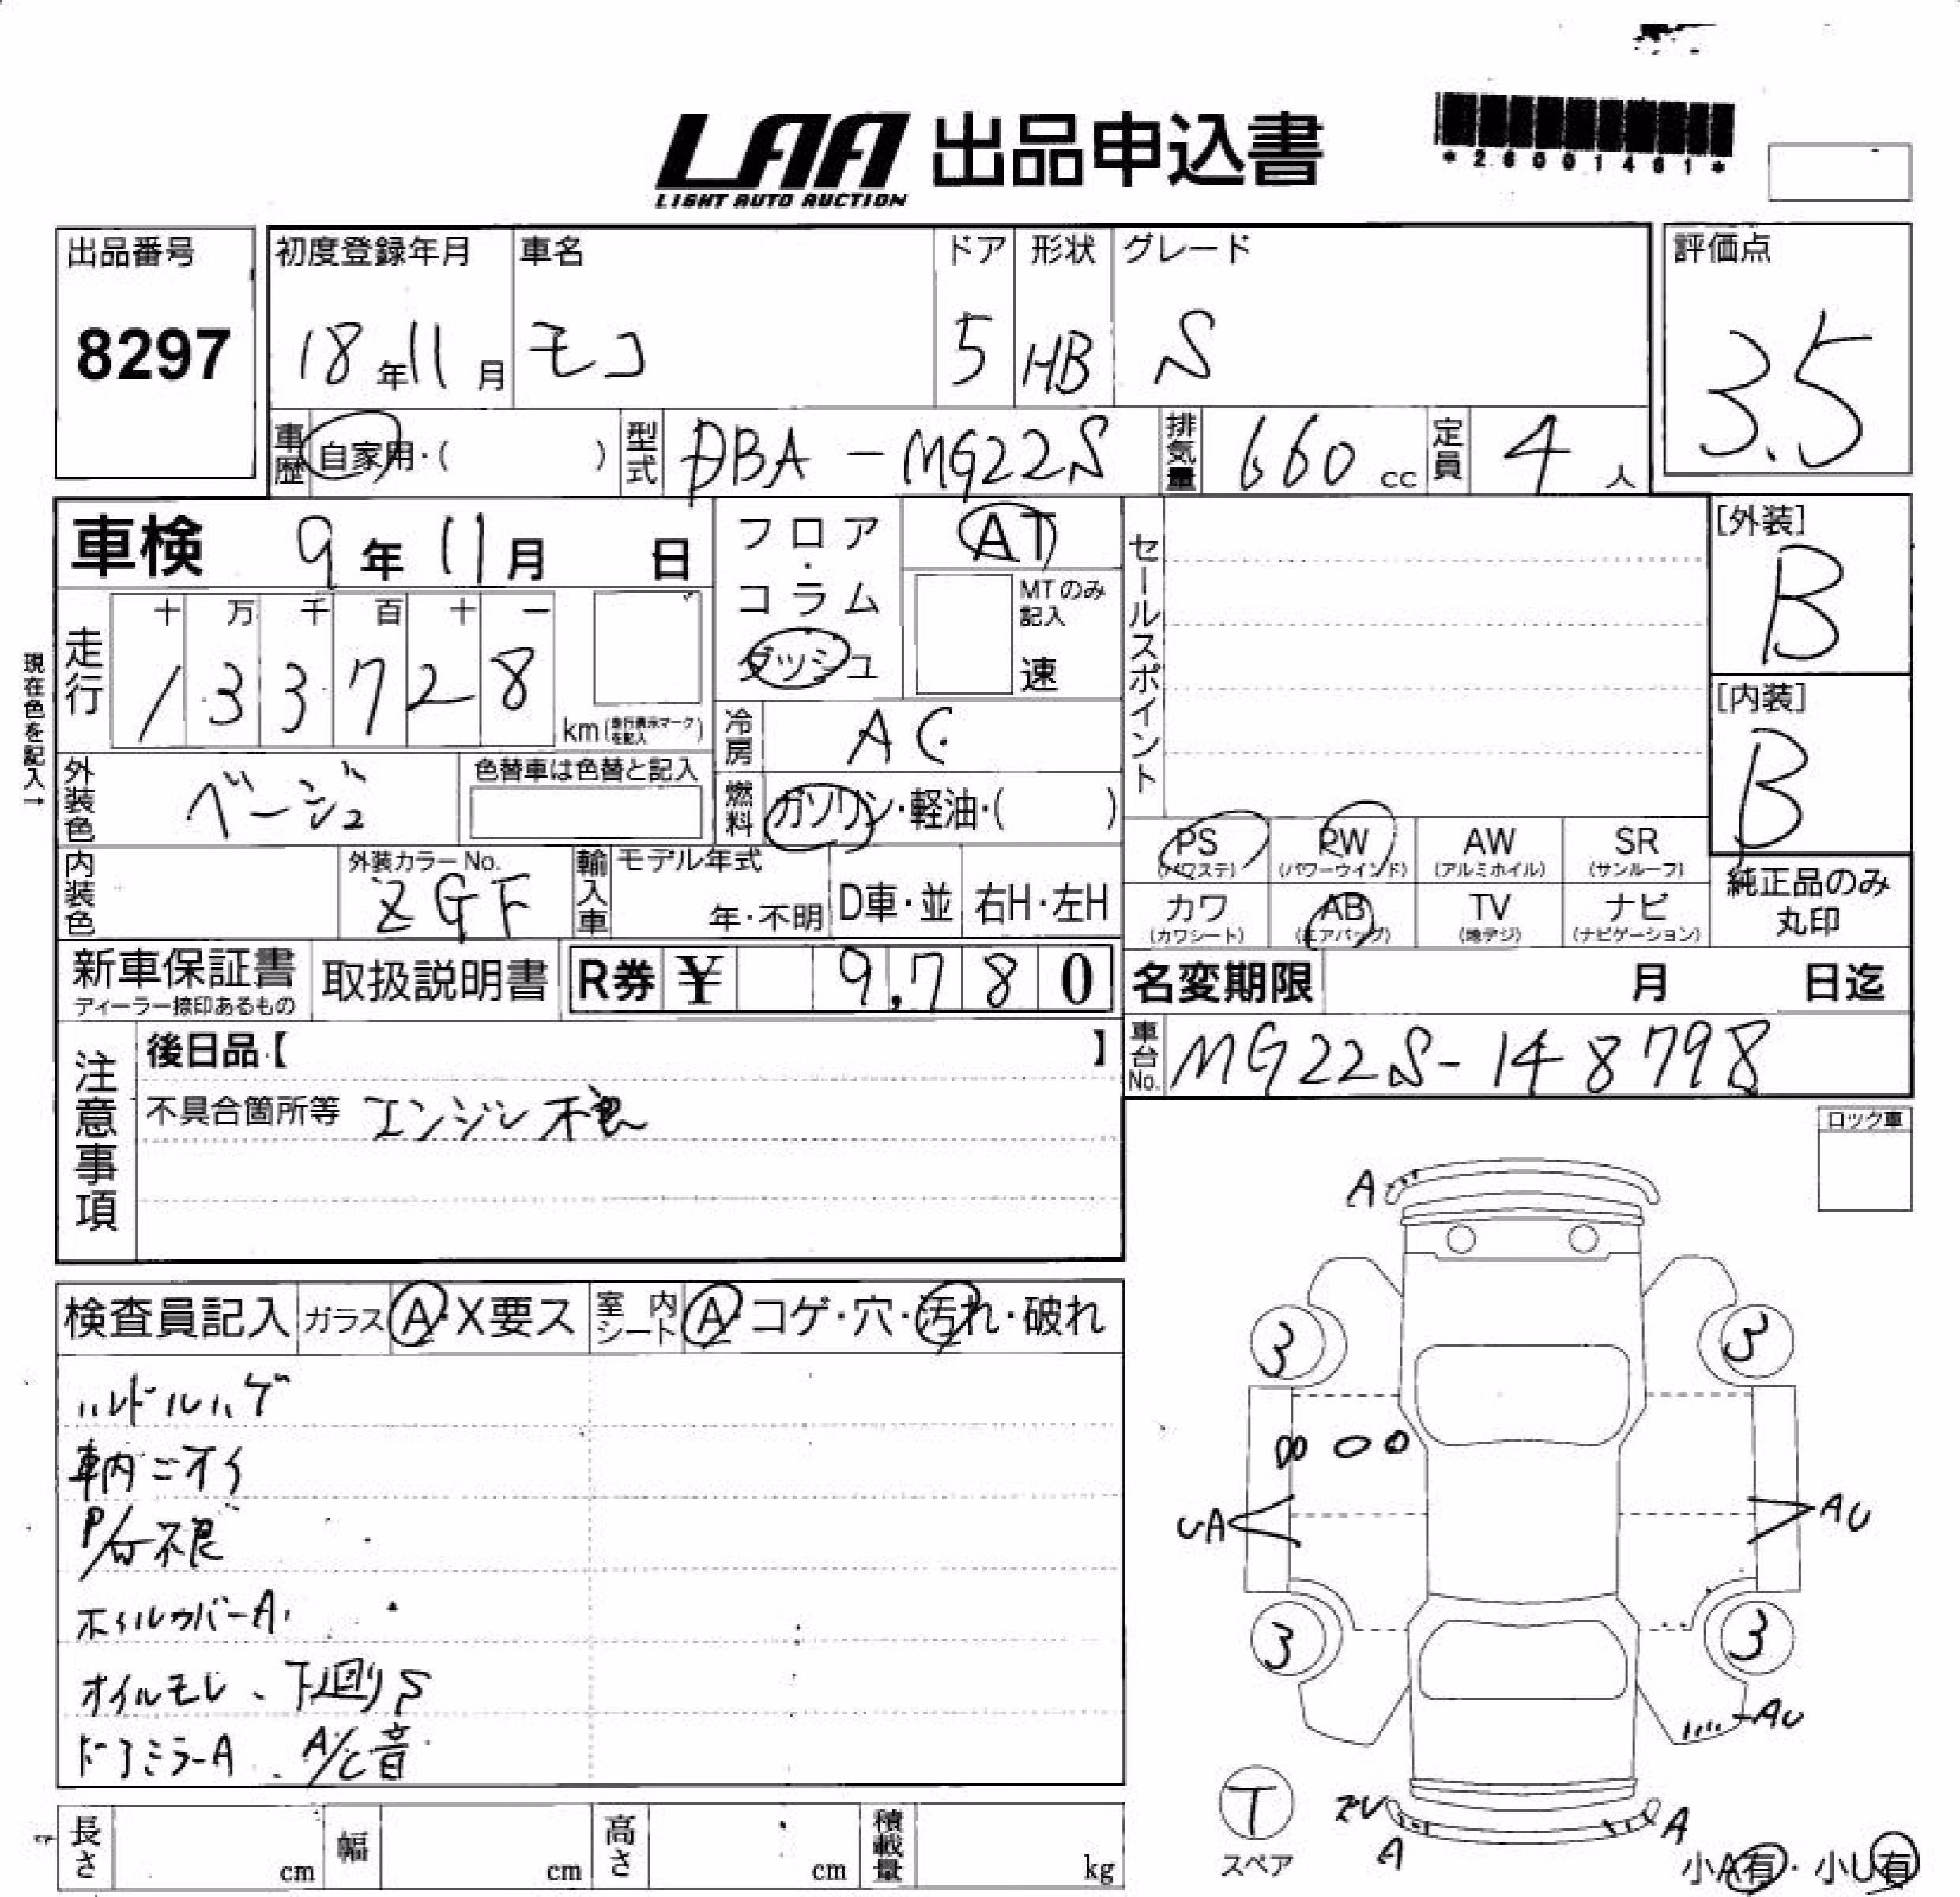 *26001461*
LAA 出品申込書
LIGHT AUTO AUCTION
出品番号 初度登録年月 車名 ドア 形状 グレード 評価点
8297 18年11月 モコ 5 HB S 3.5
車歴 自家用・( ) 型式 DBA-MG22S 排気量 660 cc 定員 4 人
車検 9年11月 日 フロア・コラム ダッシュ AT MTのみ記入 速 セールスポイント [外装] B
現在色を記入→
走行 十 万 千 百 十 一
1 3 3 7 2 8 km(走行表示マークを記入) [内装] B
冷房 AC
外装色 ベージュ 色替車は色替と記入 燃料 ガソリン・軽油・( )
PS (パワステ) PW (パワーウインド) AW (アルミホイル) SR (サンルーフ)
内装色 外装カラーNo. ZGF 輸入車 モデル年式 年・不明 D車・並 右H・左H
カワ (カワシート) AB (エアバッグ) TV (地デジ) ナビ (ナビゲーション) 純正品のみ丸印
新車保証書 ディーラー捺印あるもの 取扱説明書 R券 ¥ 9,780 名変期限 月 日迄
車台No. MG22S-148798
注意事項 後日品【 】
不具合箇所等 エンジン不良
ロック車
検査員記入 ガラス A・X要ス 室内シート A・コゲ・穴・汚れ・破れ
ハンドルハゲ
車内ニオイ
P/W不良
ホイルカバーA
オイルモレ、下廻りS
ドアミラーA、A/C音
A
3 3
UA AU
3 3
AU
T
スペア
ズレ
A A
小A有・小U有
長さ cm 幅 cm 高さ cm 積載量 kg